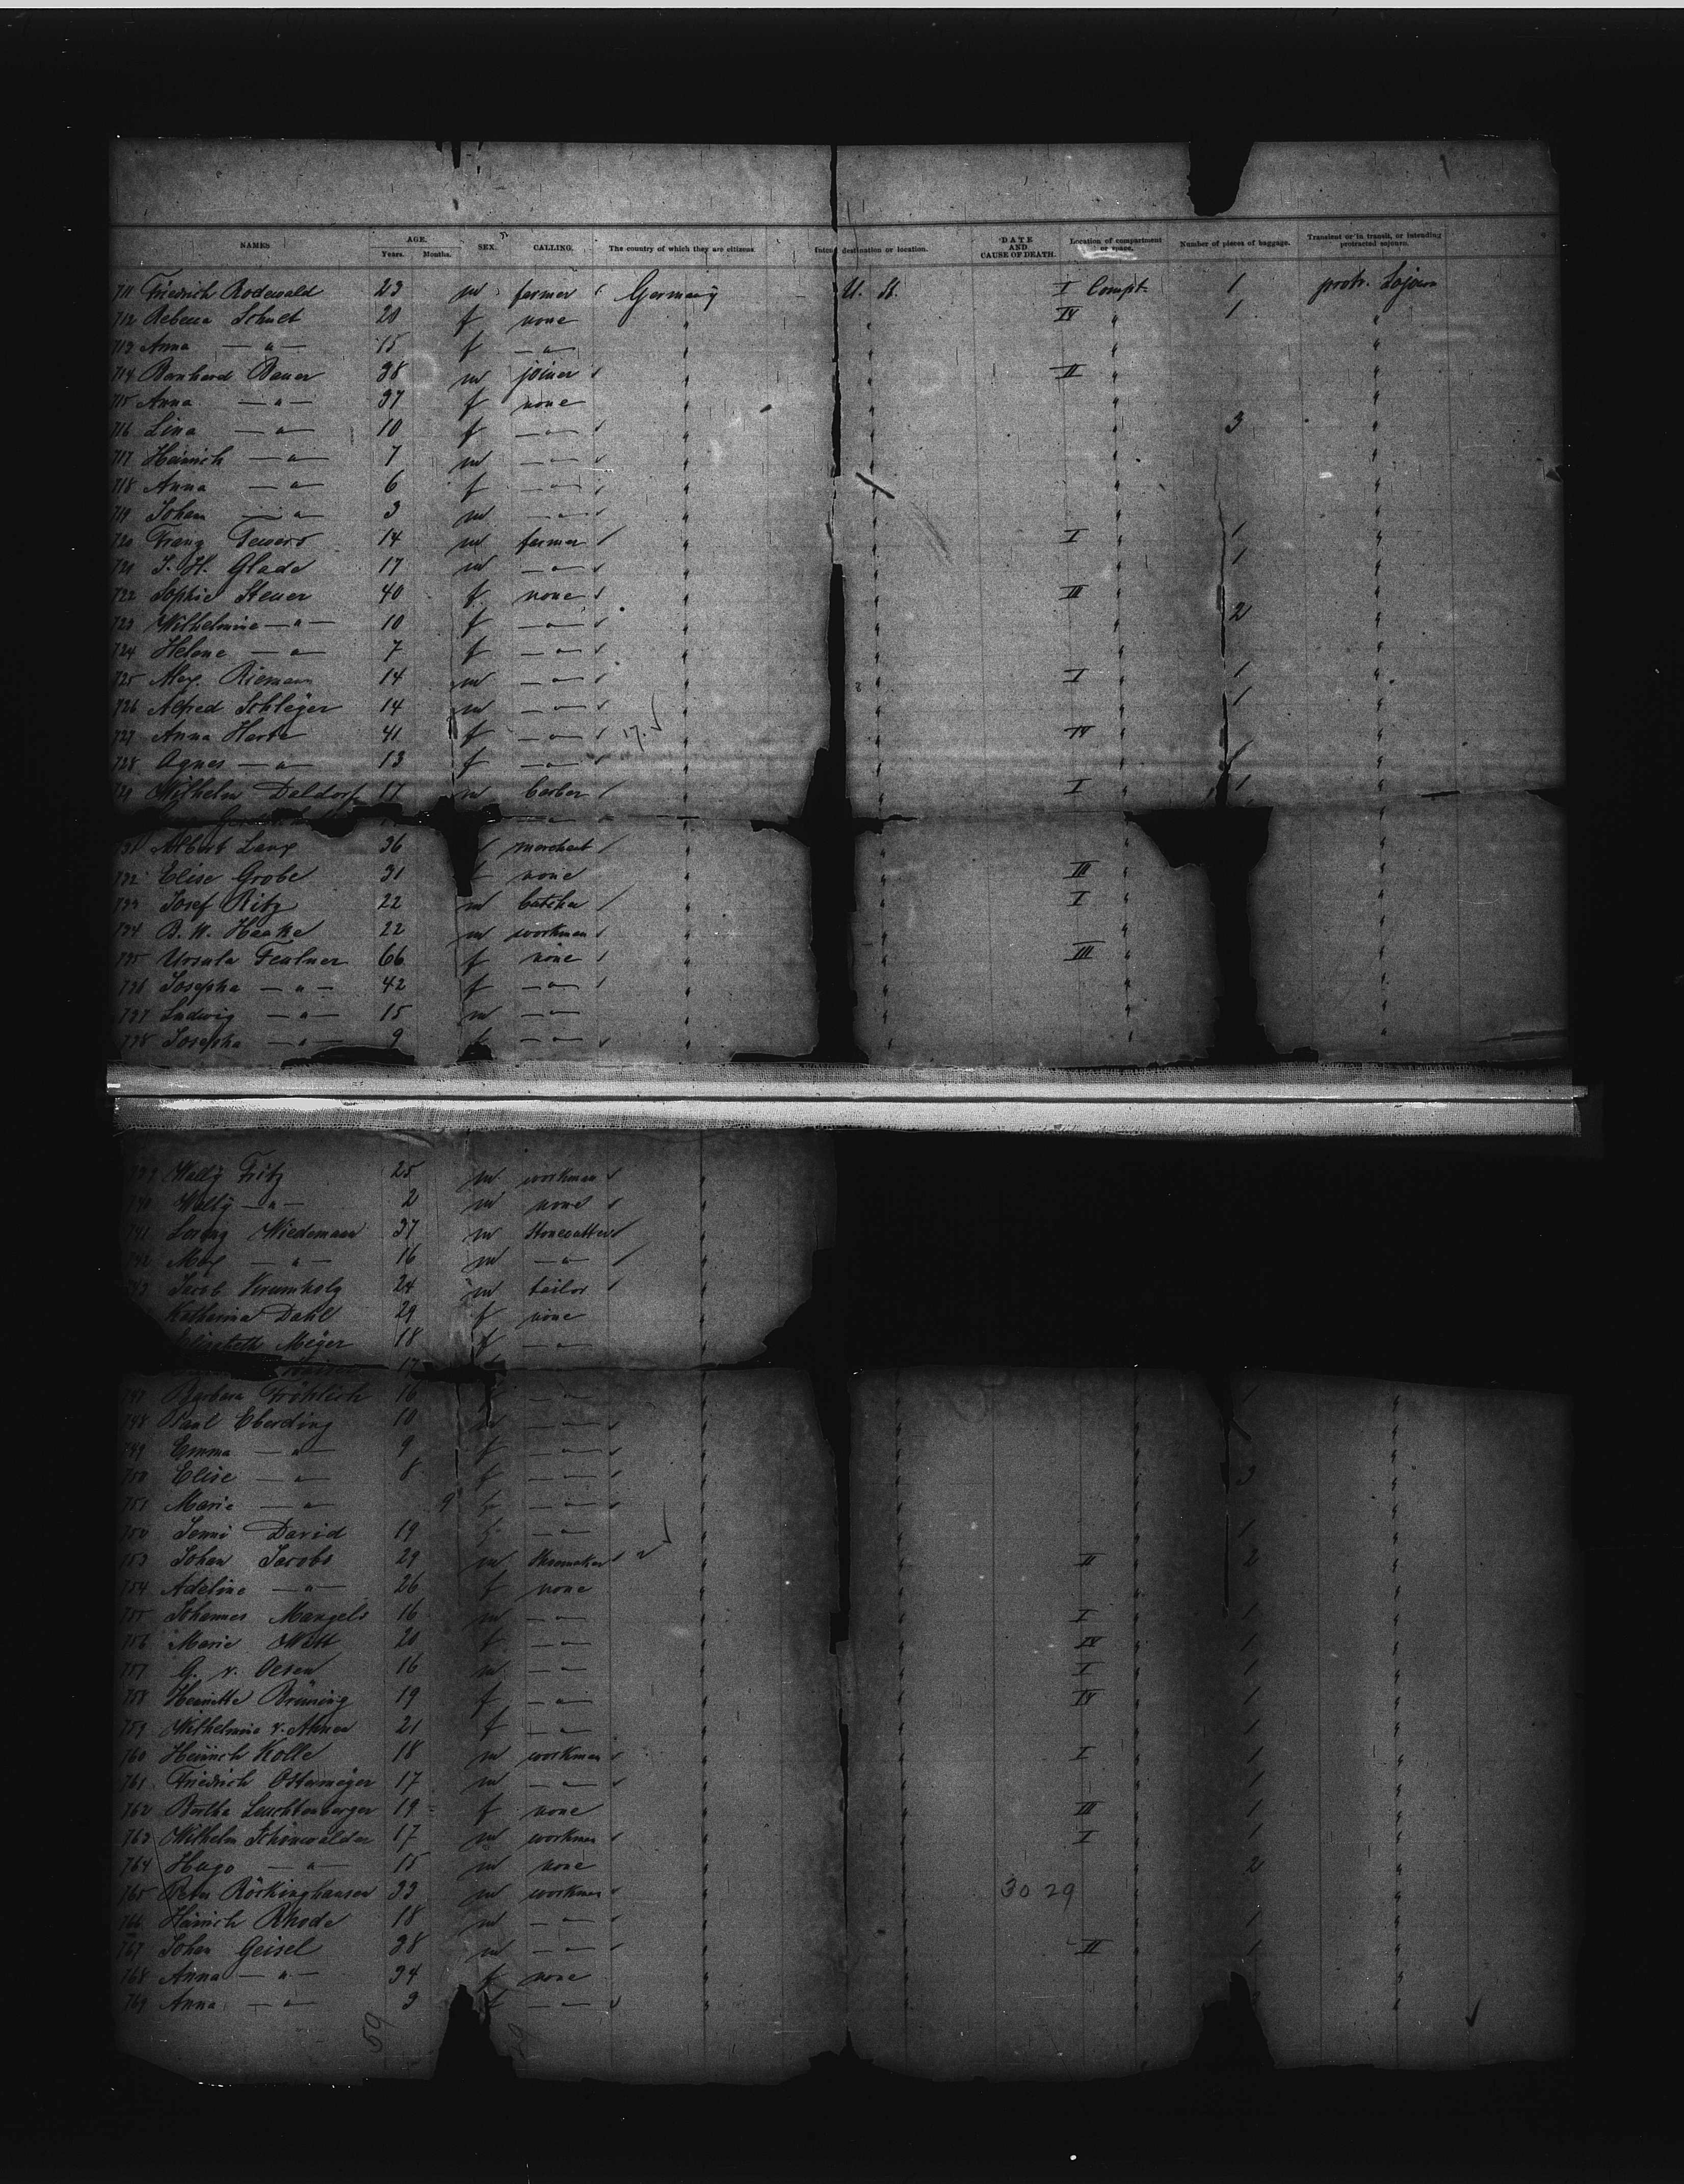 NAMES AGE. Years. Months. SEX. CALLING. The country of which they are citizens. destination or location. DATE AND CAUSE OF DEATH. Location of compartment or space. Number of pieces of baggage. Transient or in transit, or intending protracted sojourn.
711 Friedrich Rodewald 23 m farmer Germany U. St. I Compt. 1 protr. Sojourn
712 Rebecca 20 f none " " IV " 1 "
713 Anna — " — 15 f — " — " " " "
714 Bernhard Bauer 38 m joiner " " II " "
715 Anna — " — 37 f none " " " "
716 Lina — " — 10 f — " — " " " 3 "
717 Heinrich — " — 7 m — " — " " " "
718 Anna — " — 6 f — " — " " " "
719 Johan — " — 3 m — " — " " " "
720 Franz 14 m farmer " " I " 1 "
721 J. H. Glade 17 m — " — " " " 1 "
722 Sophie Steuer 40 f none " " III " "
723 Wilhelmine — " — 10 f — " — " " " 2 "
724 Helene — " — 7 f — " — " " " "
725 Max Riemann 14 m — " — " " I " 1 "
726 Alfred Schleger 14 m — " — " " " 1 "
727 Anna Harte 41 f — " — 17 " " IV " "
728 Agnes — " — 13 f — " — " " " 1 "
729 Wilhelm Deldorf 17 m barber " " I " 1 "
— " — " "
731 Albert Lang 36 merchant " " " "
732 Elise Grobe 31 f none " " III " "
733 Josef Ritz 22 m butcher " " I " "
734 B. W. Haake 22 m workman " " " "
735 Ursula Feulner 66 f none " " III " "
736 Josepha — " — 42 f — " — " " " "
737 Ludwig — " — 15 m — " — " " " "
738 Josepha — " — 9 f — " — " " " "
739 Wally Fritz 25 m workman "
740 Wally — " — 2 m none "
741 Lorenz Wiedemann 37 m Stonecutter "
742 Max — " — 16 m — " — "
743 Jacob Krumholz 24 m tailor "
Katharina Dahl 29 f none "
Elisabeth Meyer 18 f — " — "
17
747 Barbara Fröhlich 16 — " — " " " 1 "
748 Paul Eberding 10 m — " — " " " "
749 Emma — " — 9 f — " — " " " "
750 Elise — " — 8 f — " — " " " 3 "
751 Marie — " — 9 f — " — " " " "
Jenni David 19 f — " — " " " 1 "
753 Johan Jacobs 29 m Shoemaker " " II " 2 "
754 Adeline — " — 26 f none " " " "
755 Johannes Mangels 16 m — " — " " I " 1 "
756 Marie Witt 20 f — " — " " IV " 1 "
757 G. v. Oesen 16 m — " — " " I " 1 "
758 Henriette Brüning 19 f — " — " " IV " 1 "
759 Wilhelmine v. Ahnen 21 f — " — " " " 1 "
760 Heinrich Kolle 18 m workman " " I " 1 "
761 Friedrich Ostermeyer 17 m — " — " " " 1 "
762 Bertha Leuchtenberger 19 f none " " III " 1 "
763 Wilhelm Schönwalder 17 m workman " " I " 1 "
764 Hugo — " — 15 m none " " " 2 "
765 Peter Röskinghausen 33 m workman " " 30 29 " "
766 Heinrich Rhode 18 m — " — " " " 1 "
767 Johan Geisel 38 m — " — " " II " 1 "
768 Anna — " — 34 f none " " " "
769 Anna — " — 3 f — " — " " " "
59